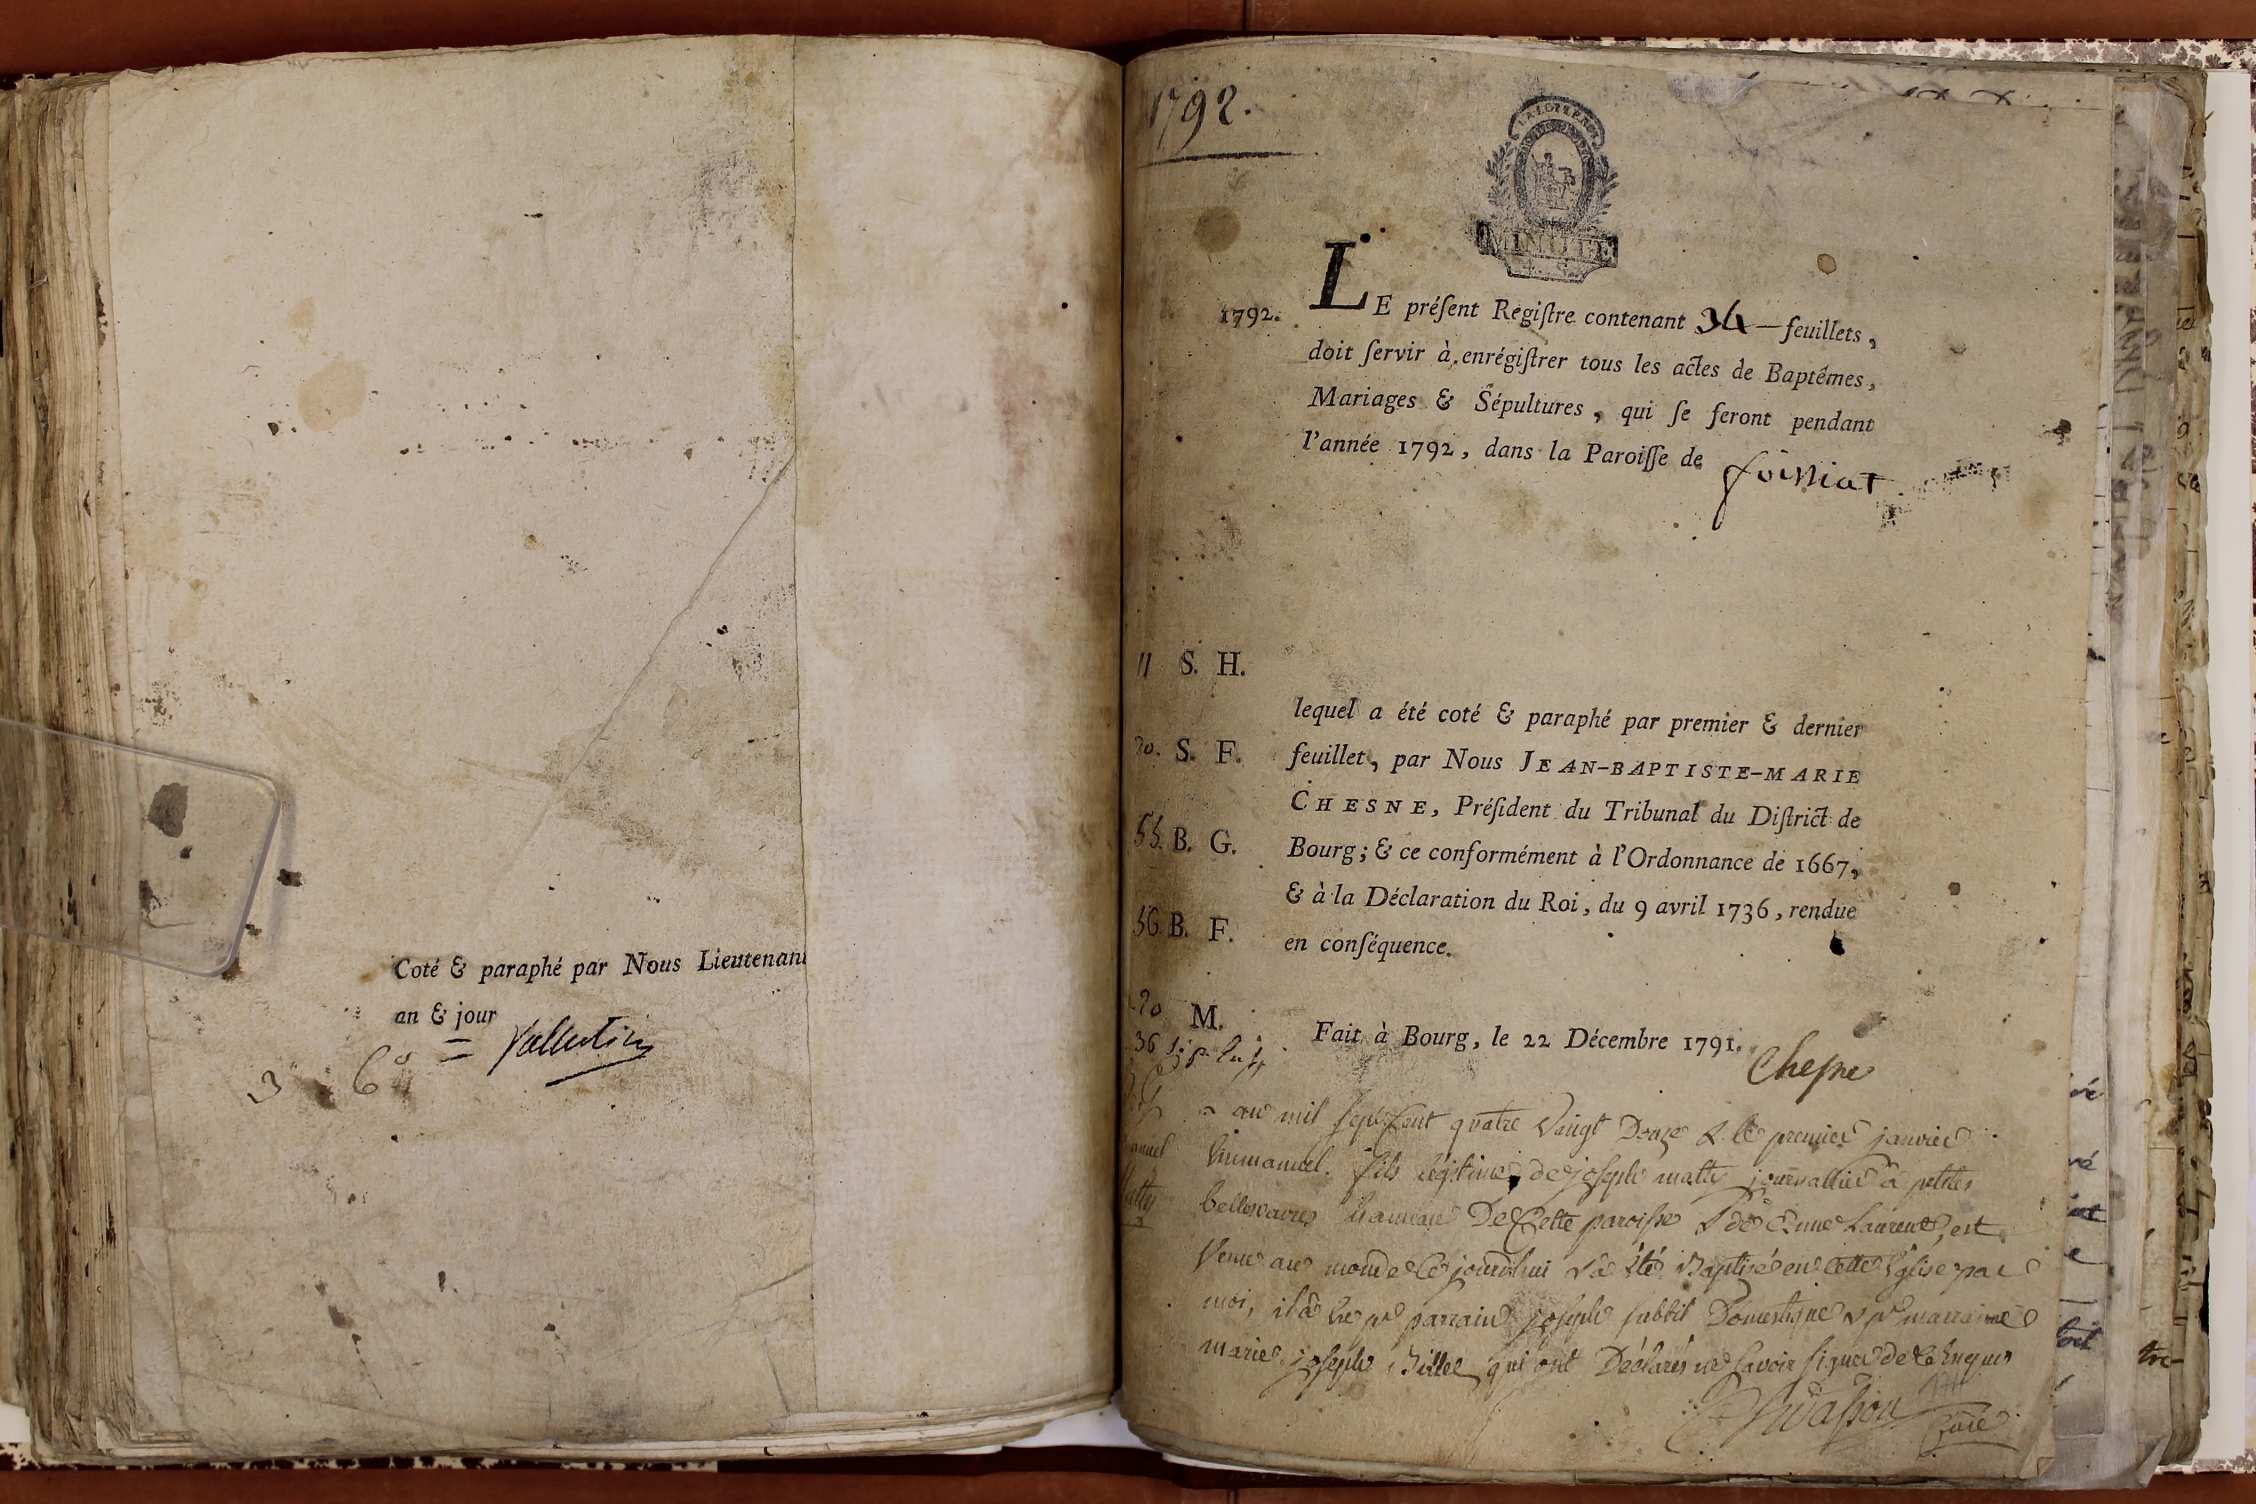 Coté & paraphé par Nous Lieutenant
an & jour
Vallentin
3 6
1792.
LA LOI ET LE ROI
MINUTE
1792.
LE préſent Regiſtre contenant 34 feuillets,
doit ſervir à enrégiſtrer tous les actes de Baptêmes,
Mariages & Sépultures, qui ſe feront pendant
l'année 1792, dans la Paroiſſe de foissiat
11 S. H.
20. S. F.
55. B. G.
56 B. F.
20 M.
36
lequel a été coté & paraphé par premier & dernier
feuillet, par Nous JEAN-BAPTISTE-MARIE
CHESNE, Préſident du Tribunal du Diſtrict de
Bourg; & ce conformément à l'Ordonnance de 1667,
& à la Déclaration du Roi, du 9 avril 1736, rendue
en conſéquence.
Fait à Bourg, le 22 Décembre 1791.
Chesne
au mil Sept Cent quatre Vingt Douze & le premier janvier
Emmanuel. fils légitime de joseph matty journallier à petites
bellesvavres hameau De Cette paroisse & de Anne Laurent, est
Venu au monde Cejourdhui & a été Baptisé en cette Eglise par
moi, il a eu pr parrain joseph Domestique & pr marraine
marie joseph Billet qui ont Déclarés ne Savoir Signer de Ce Enquis
Curé